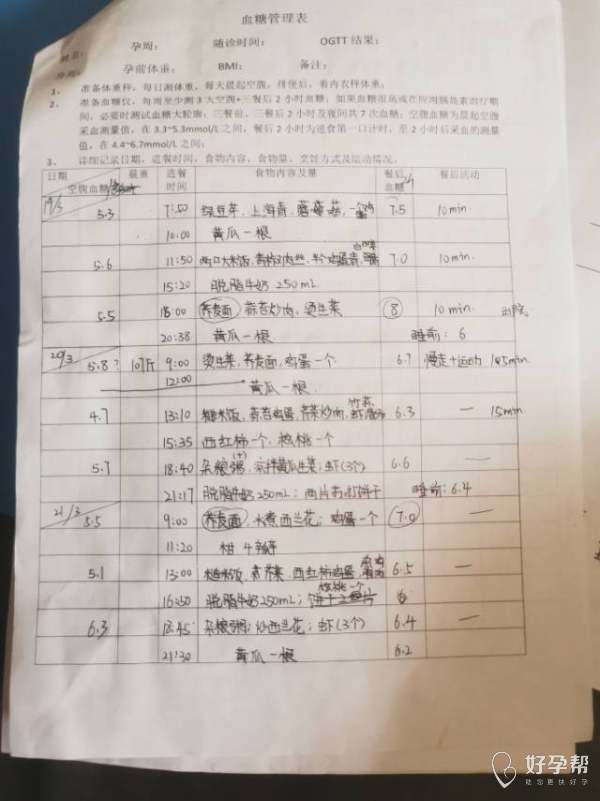 血糖管理表
孕周： 随诊时间： OGTT 结果：
孕前体重： BMI： 备注：
1、 准备体重秤，每日测体重，每天晨起空腹，排便后，着内衣秤体重；
2、 准备血糖仪，每周至少测 3 天空腹+三餐后 2 小时血糖；如果血糖很高或在应用胰岛素治疗期
间，必要时测试血糖大轮廓：三餐前，三餐后 2 小时及夜间共 7 次血糖；空腹血糖为晨起空腹
采血测量值，在 3.3~5.3mmol/L 之间，餐后 2 小时为进食第一口计时，至 2 小时后采血的测量
值，在 4.4~6.7mmol/L 之间；
3、 详细记录日期，进餐时间，食物内容，食物量，烹饪方式及活动情况。
日期 晨重 进餐 食物内容及量 餐后 餐后活动
空腹血糖 时间 血糖
19/3 5.3 7:50 绿豆芽，上海青，蘑菇，一个鸡 7.5 10min
10:00 黄瓜一根
5.6 11:50 两口大米饭， 7.0 10min
15:20 脱脂牛奶 250mL
5.5 18:00 荞麦面，蒜苔炒肉，烫生菜 8 10min
20:38 黄瓜一根 睡前：6
20/3 5.8？ 107斤 9:00 烫生菜，荞麦面，鸡蛋一个 6.7 慢走+运动
12:00 黄瓜一根
4.7 13:10 糙米饭，蒜苔鸡蛋，芹菜炒肉， 6.3 — 15min
15:35 西红柿一个，核桃一个
5.7 18:40 杂粮粥，凉拌黄瓜生菜；虾(3个) 6.6 —
21:17 脱脂牛奶250mL；两片苏打饼干 睡前：6.4
21/3 5.5 9:00 荞麦面，水煮西兰花；鸡蛋一个 7.0 —
11:20 柑 4瓣
5.1 13:00 糙米饭， 西红柿鸡蛋， 6.5 —
核桃一个
16:50 脱脂牛奶250mL； 6
6.3 18:45 杂粮粥；炒西兰花；虾(3个) 6.4 —
21:30 黄瓜一根 6.2
好孕帮
助您更快好孕